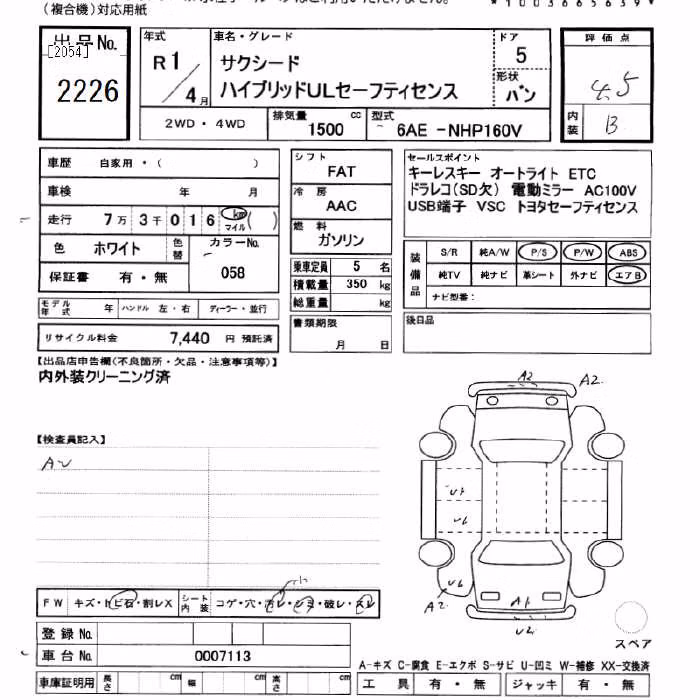 (複合機)対応用紙
*1003665639*
出品No.
[2054]
2226
年式
R1/4月
車名・グレード
サクシード
ハイブリッドULセーフティセンス
ドア
5
形状
バン
評価点
4.5
内装
B
2WD・4WD
排気量
1500
cc
型式
6AE -NHP160V
車歴
自家用・( )
車検
年 月
走行
7万3千016
km
マイル
( )
色
ホワイト
色替
カラーNo.
058
保証書
有・無
モデル年式
年
ハンドル 左・右
ディーラー・並行
リサイクル料金
7,440 円 預託済
シフト
FAT
冷房
AAC
燃料
ガソリン
乗車定員 5 名
積載量 350 kg
総重量 kg
書類期限
月 日
セールスポイント
キーレスキー オートライト ETC
ドラレコ(SD欠) 電動ミラー AC100V
USB端子 VSC トヨタセーフティセンス
装備品
S/R 純A/W P/S P/W ABS
純TV 純ナビ 革シート 外ナビ エアB
ナビ型番:
後日品
【出品店申告欄(不良箇所・欠品・注意事項等)】
内外装クリーニング済
【検査員記入】
AU
A2
A2
U1
U2
A1
U2
A2
スペア
FW キズ・トビ石・割レX
シート内装 コゲ・穴・汚レ・シミ・破レ・スレ
小
登録No.
車台No. 0007113
車庫証明用
長さ cm
幅 cm
高さ cm
A-キズ C-腐食 E-エクボ S-サビ U-凹ミ W-補修 XX-交換済
工具 有・無
ジャッキ 有・無